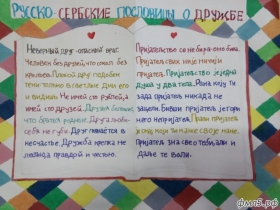 РУССКО СЕРБСКИЕ ПОСЛОВИЦЫ О ДРУЖБЕ
Неверный друг-опасный враг.
Человек без друзей, что сокол без
крыльев. Плохой друг подобен
тени: только в светлые дни его
и видишь. Не имей сто рублей, а
имей сто друзей. Друзья большие,
что братья родные. Друга люби-
себя не губи. Друг познается в
несчастье. Дружба крепка не
лестью, а правдой и честью.
Пријатељство се не бира, оно бива
Пријатељ свих није ничији
пријатељ. Пријатељство је једна
душа у два тела. Рана коју ти
зада пријатељ никада не
зацели. Бивши пријатељ је гори
него непријатељ. Прави пријатељ
је онај који ти каже своје мане.
Пријатељ зна све о теби, али и
даље те воли.
фмоб.рф